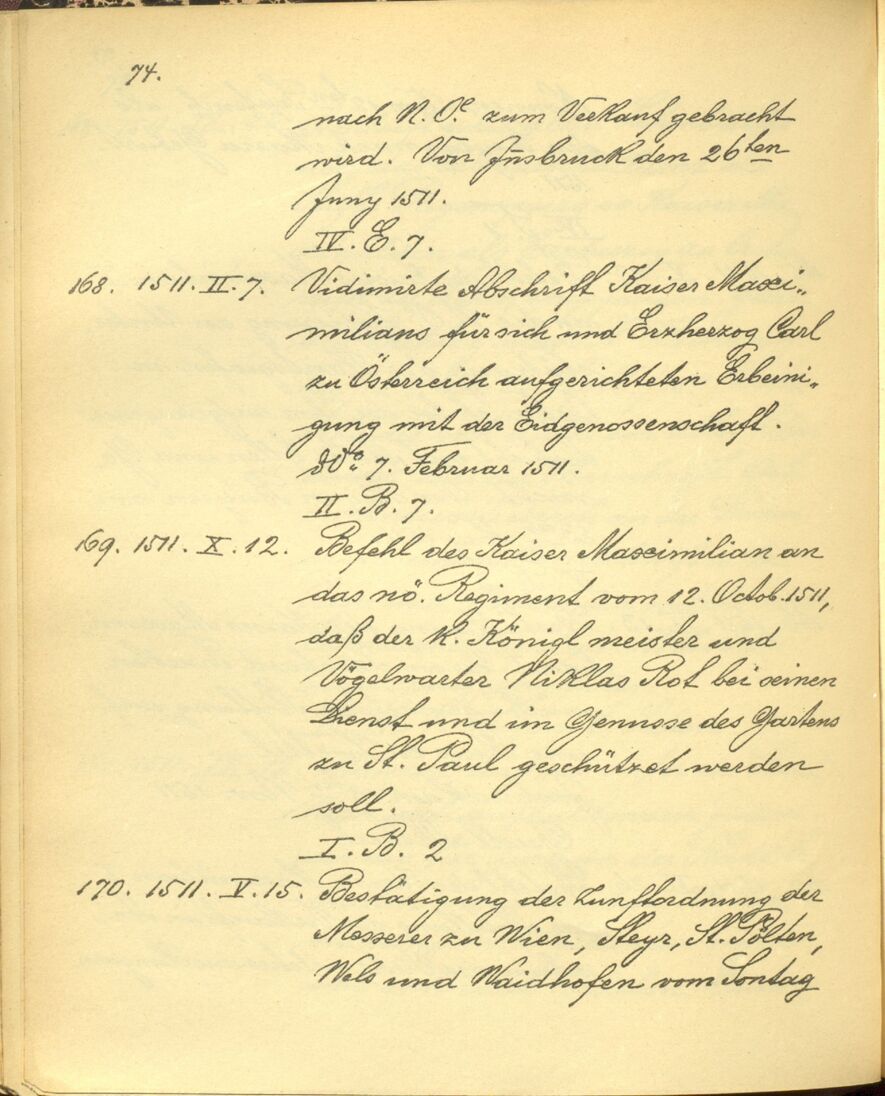 74.
nach N. Oe. zum Verkauf gebracht
wird. Von Jnsbruck den 26ten
Juny 1511.
IV. E. 7.
168. 1511. II. 7. Vidimirte Abschrift Kaiser Maxi„
milians für sich und Erzherzog Carl
zu Österreich aufgerichteten Erbeini„
gung mit der Eidgenossenschaft.
7. Februar 1511.
II. B. 7.
169. 1511. X. 12. Befehl des Kaiser Maximilian an
das nö. Regiment vom 12. Octob. 1511,
daß der k. Königl meister und
Vögelwarter Niklas Rot bei seinen
Dienst und im Genusse des Gartens
zu St. Paul geschützet werden
soll.
I. B. 2
170. 1511. V. 15. Bestätigung der Zunftordnung der
Messerer zu Wien, Steyr, St. Pölten,
Wels und Waidhofen vom Sontag